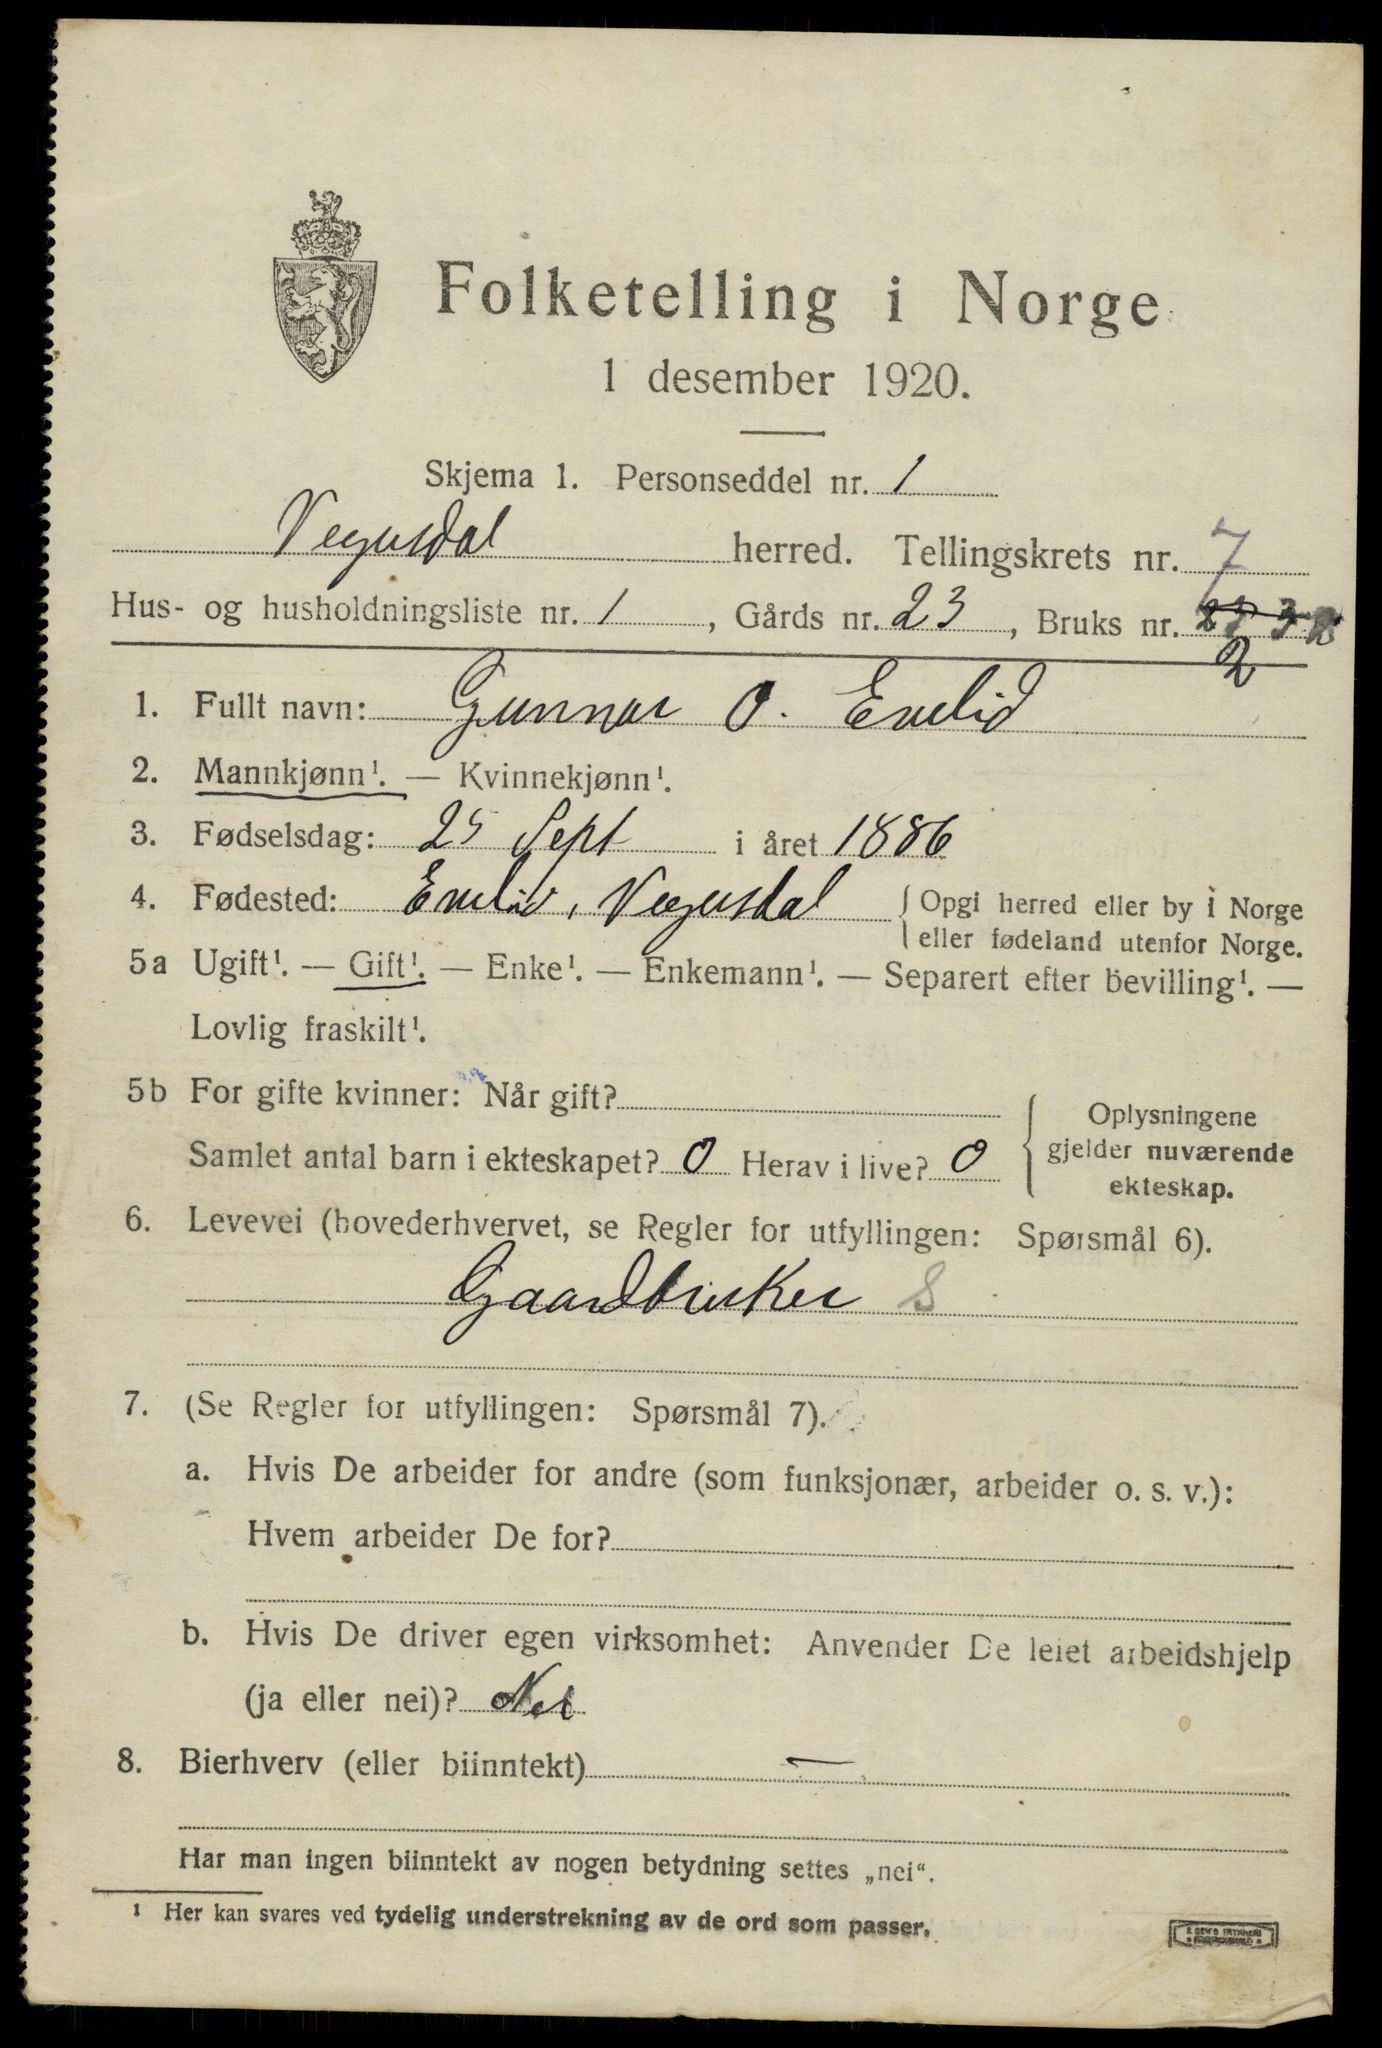 Folketelling i Norge
1 desember 1920.
Skjema 1. Personseddel nr. 1
Vegusdal herred. Tellingskrets nr. 7
Hus- og husholdningsliste nr. 1, Gårds nr. 23, Bruks nr.
2
1. Fullt navn: Gunnar O. Evelid
2. Mannkjønn¹. — Kvinnekjønn¹.
3. Fødselsdag: 25 Sept i året 1886
4. Fødested: Evelid, Vegusdal { Opgi herred eller by i Norge
eller fødeland utenfor Norge.
5a Ugift¹. — Gift¹. — Enke¹. — Enkemann¹. — Separert efter bevilling¹. —
Lovlig fraskilt¹.
5b For gifte kvinner: Når gift?
Samlet antal barn i ekteskapet? 0 Herav i live? 0
Oplysningene
gjelder nuværende
ekteskap.
6. Levevei (hovederhvervet, se Regler for utfyllingen: Spørsmål 6).
Gaardbruker S
7. (Se Regler for utfyllingen: Spørsmål 7).
a. Hvis De arbeider for andre (som funksjonær, arbeider o. s. v.):
Hvem arbeider De for?
b. Hvis De driver egen virksomhet: Anvender De leiet arbeidshjelp
(ja eller nei)? Nei
8. Bierhverv (eller biinntekt) —
Har man ingen biinntekt av nogen betydning settes „nei“.
¹ Her kan svares ved tydelig understrekning av de ord som passer.